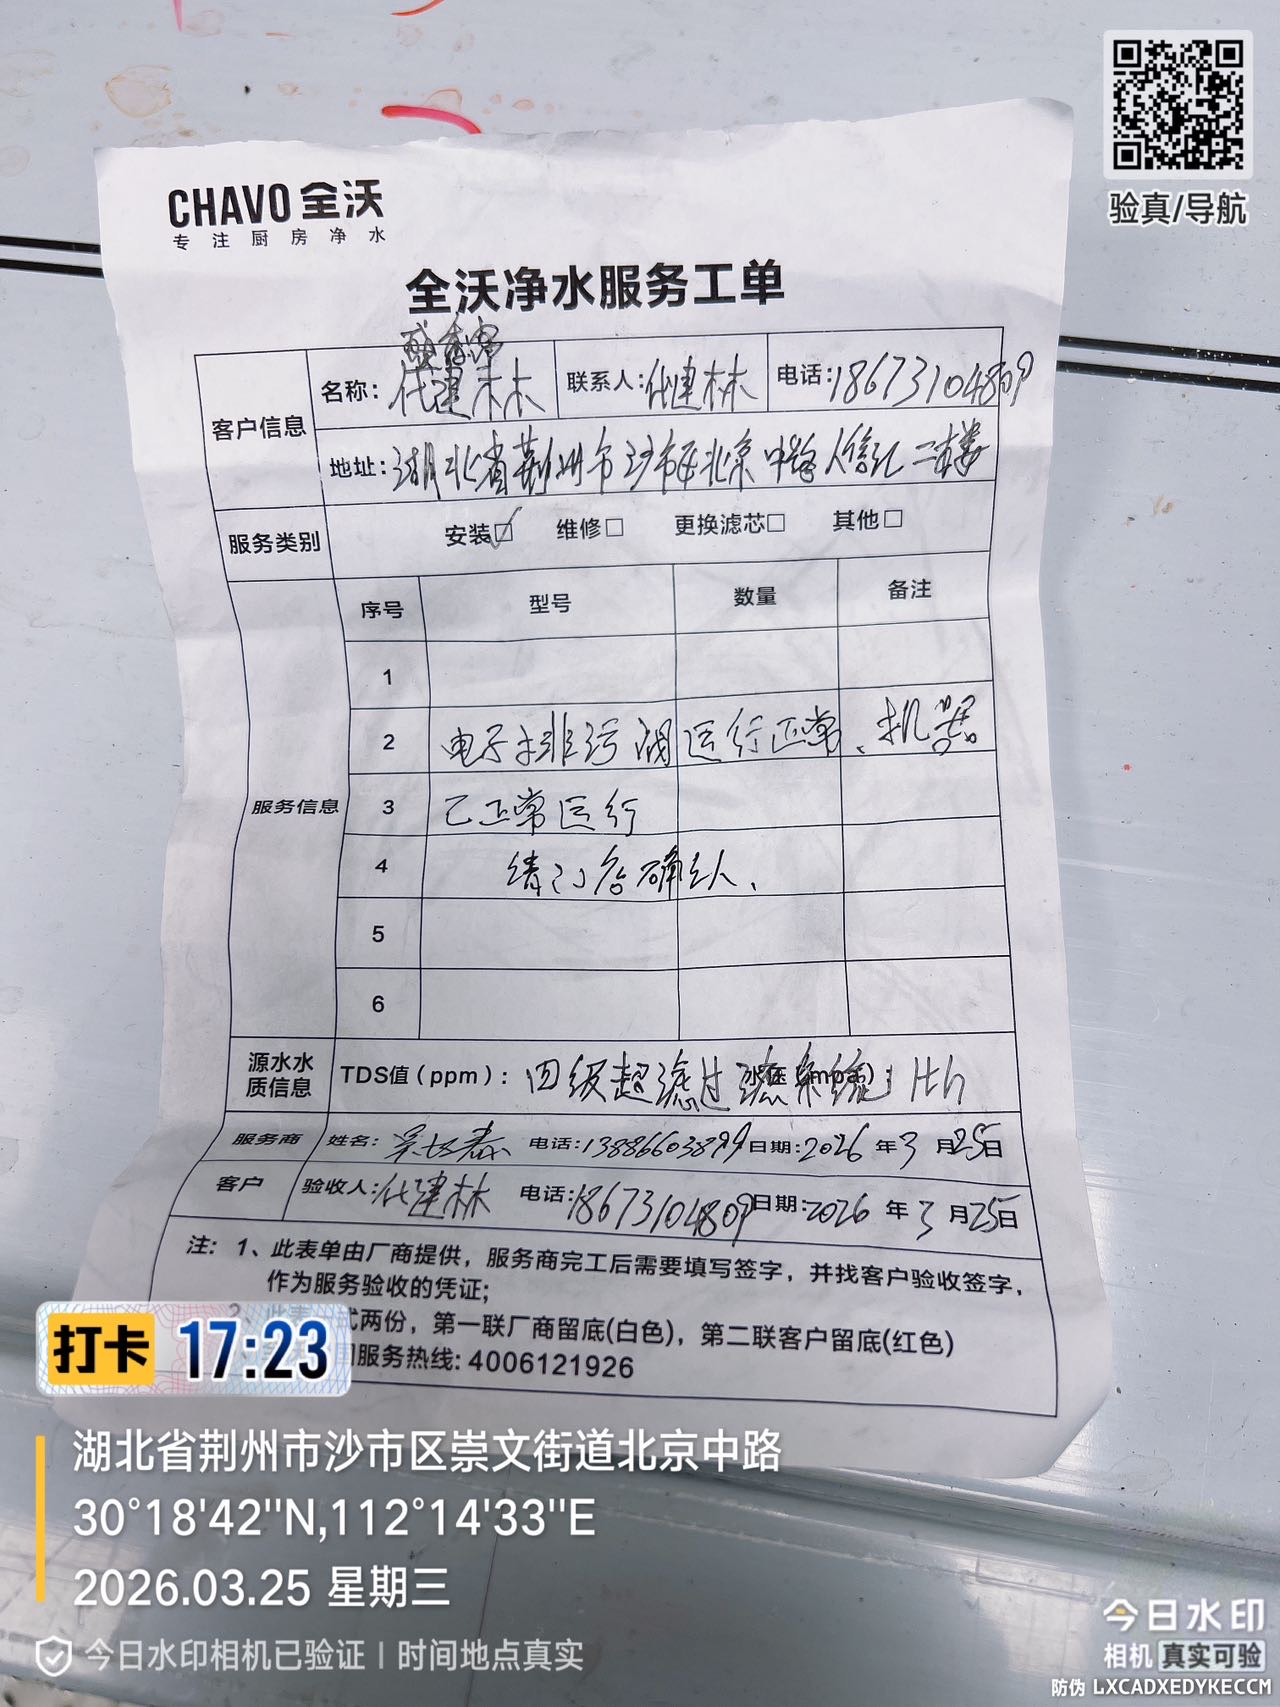 验真/导航
CHAVO 全沃
专注厨房净水
全沃净水服务工单
客户信息
名称: 代建林 联系人: 代建林 电话: 18673104809
地址: 湖北省荆州市沙市区北京中路人信汇二楼
服务类别 安装☑ 维修□ 更换滤芯□ 其他□
服务信息
序号 型号 数量 备注
1
2 电子排污阀运行正常、机器
3 已正常运行
4 请门店确认、
5
6
源水水质信息 TDS值(ppm): 四级超滤过滤系统
服务商 姓名: 电话: 13886603899 日期: 2026年3月25日
客户 验收人: 代建林 电话: 18673104809 日期: 2026年3月25日
注: 1、此表单由厂商提供，服务商完工后需要填写签字，并找客户验收签字，
作为服务验收的凭证;
式两份，第一联厂商留底(白色)，第二联客户留底(红色)
服务热线: 4006121926
打卡 17:23
湖北省荆州市沙市区崇文街道北京中路
30°18'42''N,112°14'33''E
2026.03.25 星期三
今日水印相机已验证 | 时间地点真实
今日水印
相机 真实可验
防伪 LXCADXEDYKECCM